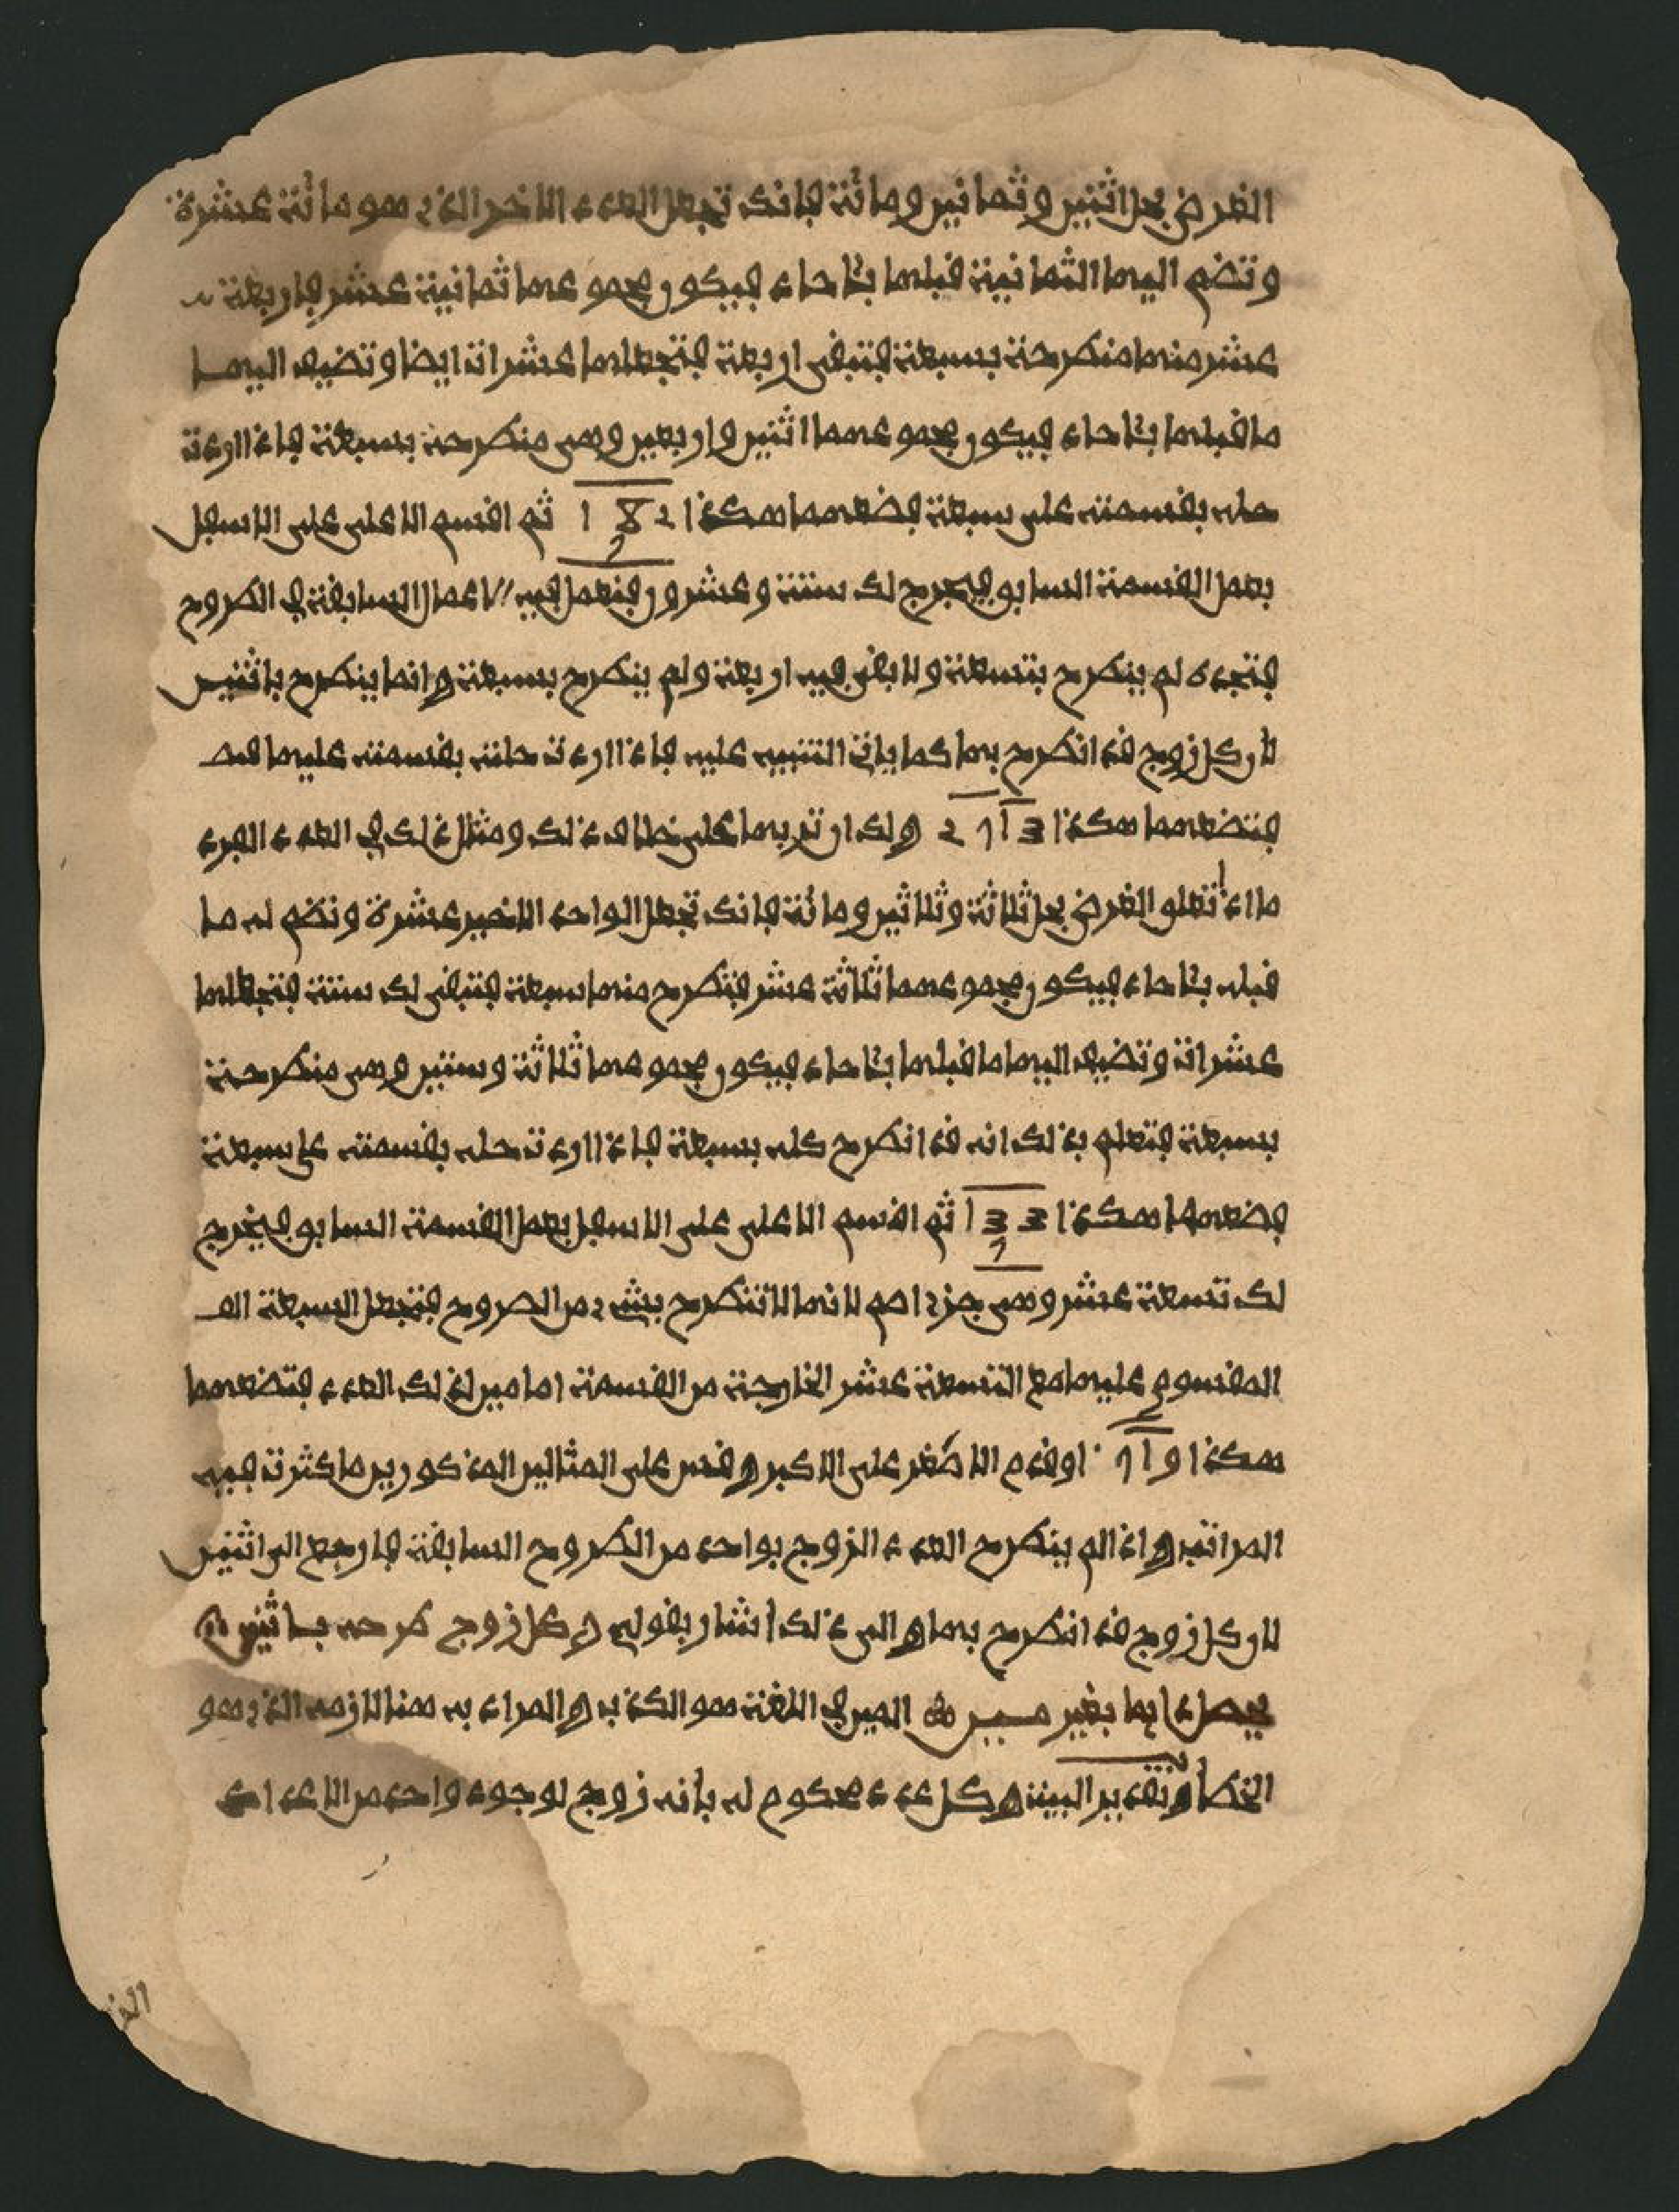 الغرض بحل اثنين وثمانين ومائة فإنك تجعل العدد الاخر الذي هو مائة عشرة
وتضم اليها الثمانية قبلها بئاحاد فيكون مجموعها ثمانية عشر فاربعة
عشر منها منطرحة بسبعة فتبقى اربعة فتجعلها عشرات ايضا وتضيف اليها
ما قبلها بئاحاد فيكون مجموعهما اثنين واربعين وهي منطرحة بسبعة فاذا اردت
حله بقسمته على سبعة فضعهما هكذا 182 7 ثم اقسم الاعلى على الاسفل
بعمل القسمة السابق فيخرج لك ستة وعشرون فتعمل فيه الاعمال السابقة في الطروح
فتجده لم ينطرح بتسعة ولا بقي فيه اربعة ولم ينطرح بسبعة وانما ينطرح باثنين
لان كل زوج قد انطرح بها كما يات التنبيه عليه فاذا اردت حلته بقسمته عليها فيه
فتضعهما هكذا 13 7 2 ولك ان تربها على خلاف ذلك ومثال ذلك في العدد الفرد
ما اذا تعلق الغرض بحل ثلاثة وثلاثين ومائة فإنك تجعل الواحد الاخير عشرة وتضم له ما
قبله بئاحاد فيكون مجموعهما ثلاثة عشر فتطرح منها سبعة فتبقى لك ستة فتجعلها
عشرات وتضيف اليها ما قبلها بئاحاد فيكون مجموعها ثلاثة وستين وهي منطرحة
بسبعة فتعلم بذلك انه قد انطرح كله بسبعة فاذا اردت حله بقسمته على سبعة
فضعهما هكذا 133 7 ثم اقسم الاعلى على الاسفل بعمل القسمة السابق فيخرج
لك تسعة عشر وهي جزء اصم لانها لا تنطرح بشيء من الطروح فتجعل السبعة
المقسوم عليها مع التسعة عشر الخارجة من القسمة امامين لذلك العدد فتضعهما
هكذا 19 7 اوقدم الاصغر على الاكبر وقس على المثالين المذكورين ما كثرت فيه
المراتب واذا لم ينطرح العدد الزوج بواحد من الطروح السابقة فارجع الى اثنين
لان كل زوج قد انطرح بها والى ذلك اشار بقوله وكل زوج طرحه باثنين
يحصل دايما بغير مين المين في اللغة هو الكذب والمراد به هنا لازمه الذي هو
الخطأ وتقدير البيت وكل عدد محكوم له بانه زوج لوجود واحد من الاعداد